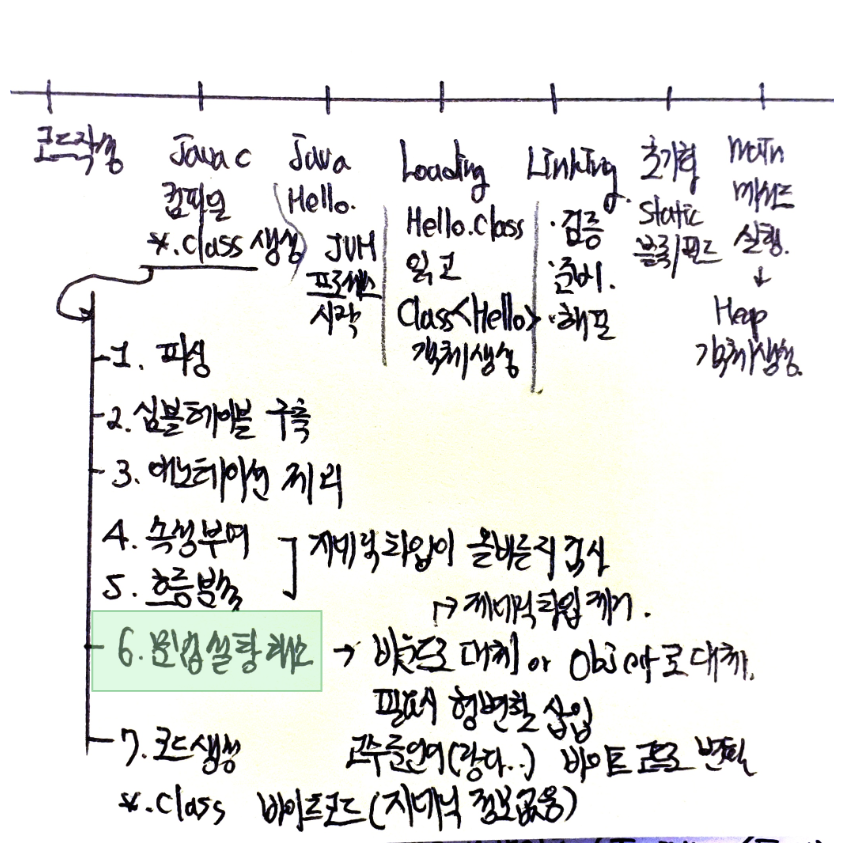 코드작성
Java c
컴파일
*.class 생성
Java
Hello.
JVM
프로세스
시작
Loading
Hello.class
읽고
Class<Hello>
객체생성
Linking.
·검증
·준비.
·해석
초기화
Static
블록/필드
main
메서드
실행.
↓
Heap
객체생성.
1. 파싱
2. 심볼테이블 구축
3. 애노테이션 처리
4. 속성부여
5. 흐름분석
제네릭타입이 올바른지 검사
↱ 제네릭타입 제거.
6. 문법설탕 해소 → 바운드로 대체 or Object로 대체.
필요시 형변환 삽입
7. 코드생성 고수준언어(람다..) 바이트 코드로 변환
*.class 바이트코드 (제네릭 정보없음)